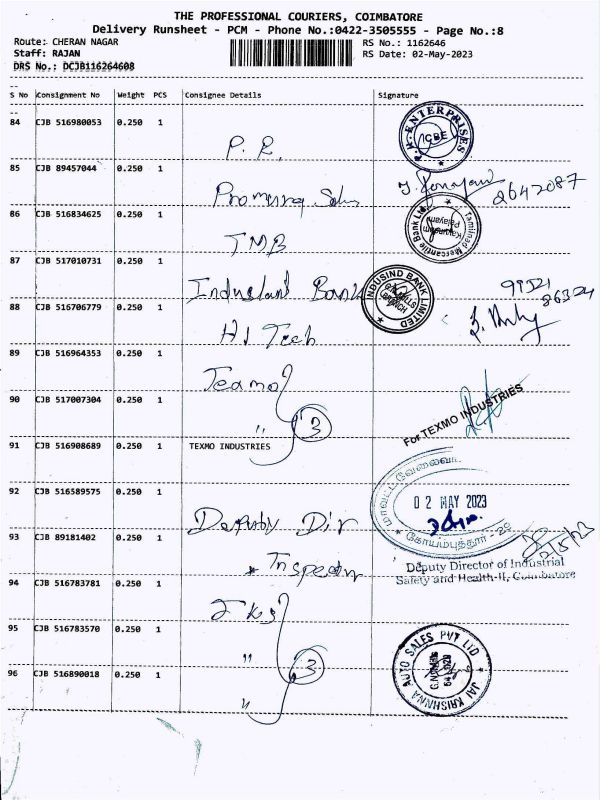 THE PROFESSIONAL COURIERS, COIMBATORE
Delivery Runsheet - PCM - Phone No.:0422-3505555 - Page No.:8
Route: CHERAN NAGAR RS No.: 1162646
Staff: RAJAN RS Date: 02-May-2023
DRS No.: DCJB116264608
S No Consignment No Weight PCS Consignee Details Signature
84 CJB 516980053 0.250 1
P.R. ENTERPRISES CBE
85 CJB 89457044 0.250 1
2642087
86 CJB 516834625 0.250 1
TMB Tamilnad Mercantile Bank Ltd Palayam
87 CJB 517010731 0.250 1
Indusland Bank INDUSIND BANK LIMITED G.N. MILLS BRANCH 86324
88 CJB 516706779 0.250 1
Hi Tech
89 CJB 516964353 0.250 1
90 CJB 517007304 0.250 1
" 3 For TEXMO INDUSTRIES
91 CJB 516908689 0.250 1 TEXMO INDUSTRIES
92 CJB 516589575 0.250 1 02 MAY 2023
Deputy Dir கோயம்புத்தூர்
93 CJB 89181402 0.250 1 2/5/23
Deputy Director of Industrial
Safety and Health-II, Coimbatore
94 CJB 516783781 0.250 1
JKs
95 CJB 516783570 0.250 1
" 3 JAI KRISHNAA AUTO SALES PVT LTD G.N.MILLS 641 029
96 CJB 516890018 0.250 1
"